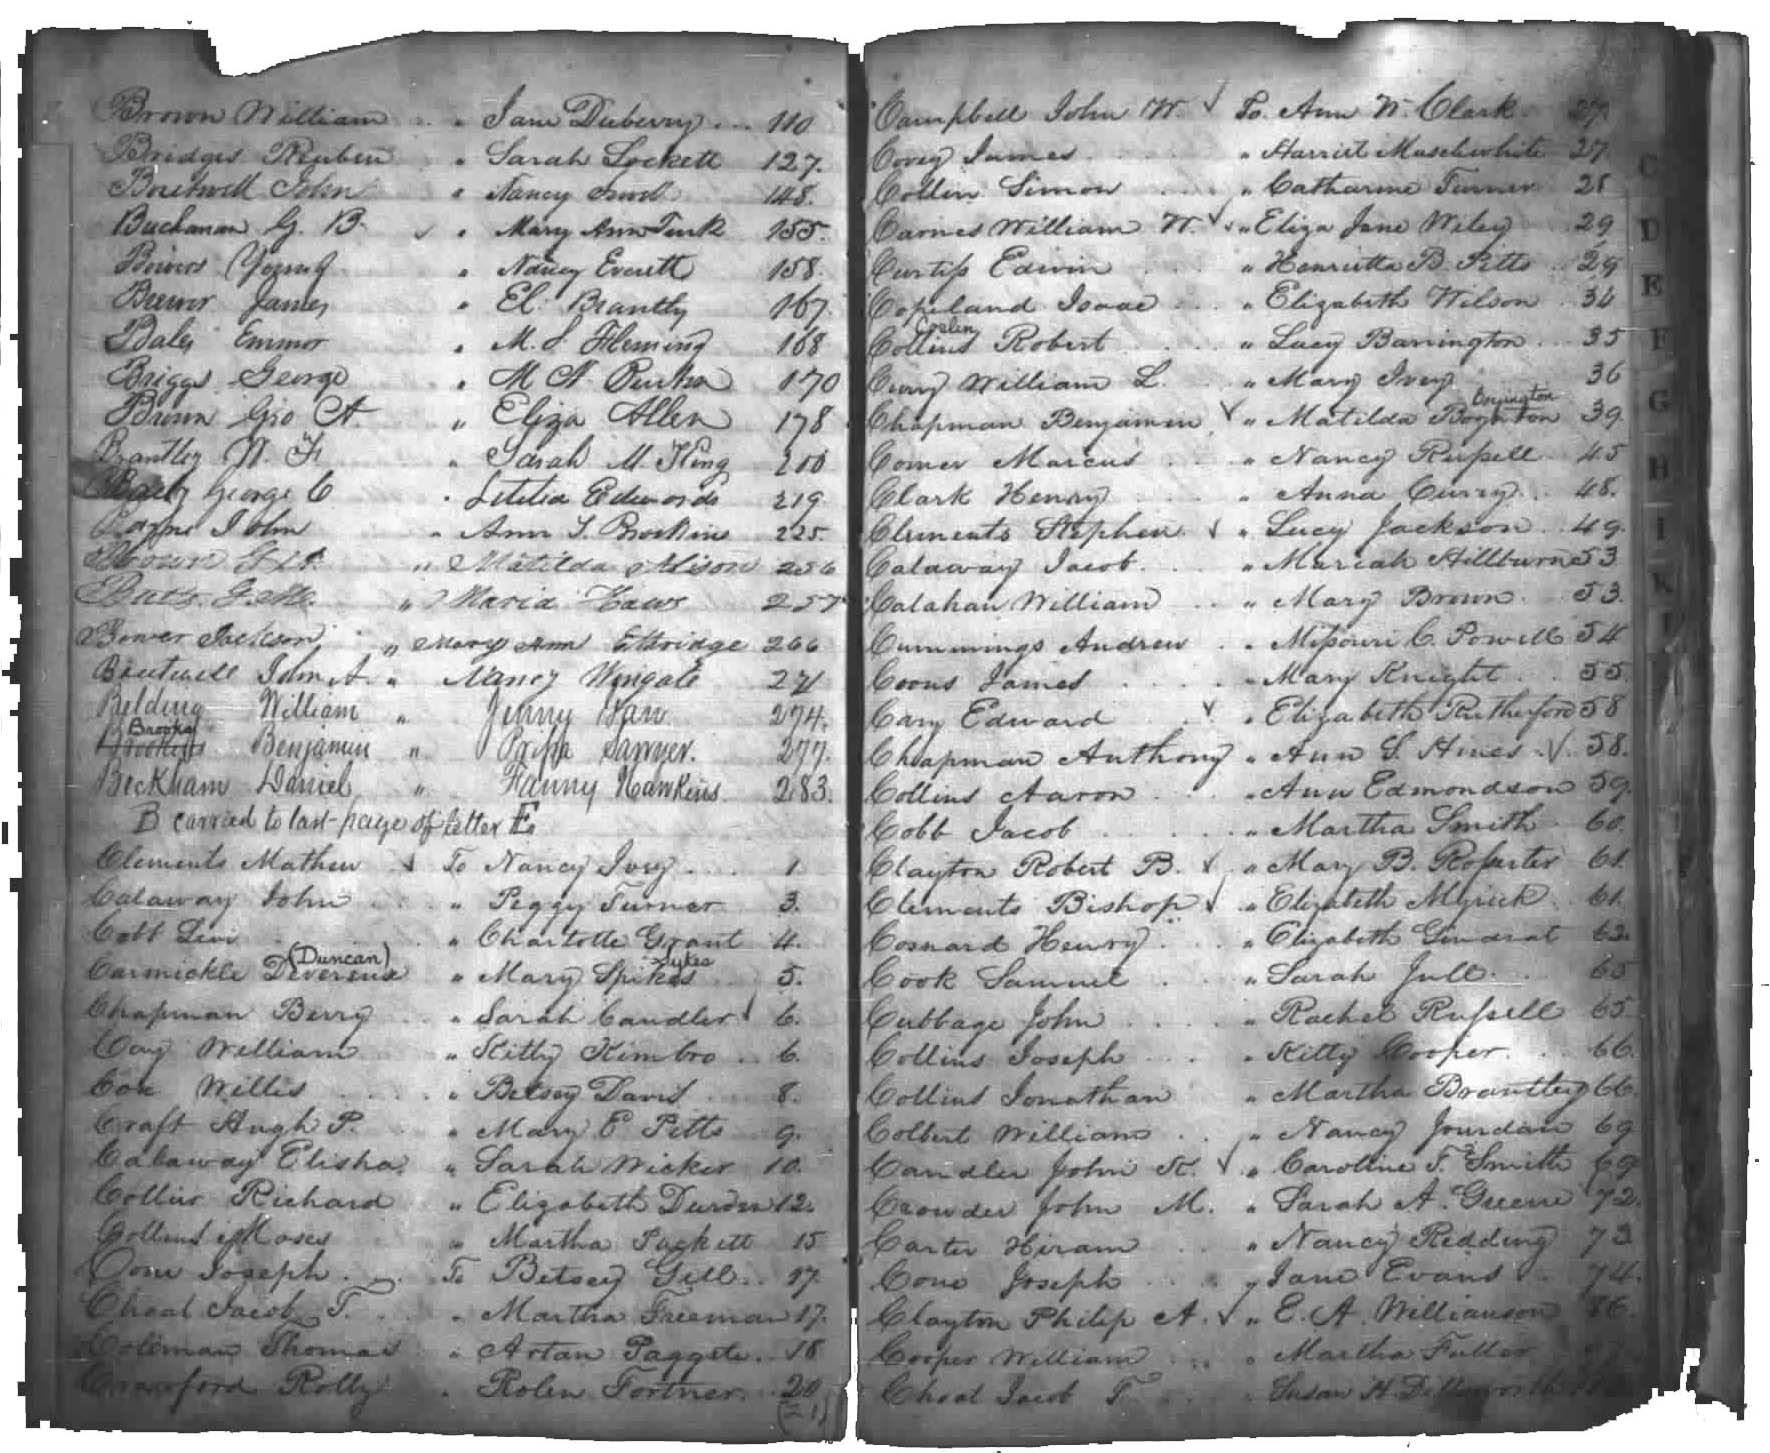 Brown William " Jane Duberry 110
Bridges Reuben " Sarah Lockett 127.
Boutwell John " Nancy 148.
Buchanan G. B. ✓ " Mary Ann Turk 155.
Bowers Young " Nancy Everett 158.
Brewer James " El. Brantly 167.
Bales Emmor " M. S. Fleming 168
Briggs George " M A 170
Brown Geo A. " Eliza Allen 178
Brantley W. F. " Sarah M. King 200
George C " Letitia Edwards 219
John " Ann S. Brookins 225
Brown " Matilda Alison 256
Butts J. M. " Maria Haws 257
Bower Jackson " Mary Ann Ethridge 266
Boutwell John A. " Nancy Wingate 271
Belding William " Jenny 274.
Brooks
Benjamin " Prissa Sanner. 277.
Beckham Daniel " Fanny Hawkins 283.
B carried to last page of letter E.
Clements Mathew ✓ To Nancy Ivey 1.
Calaway John " Peggy Turner 3.
Cobb Levi " Charlotte Grant 4.
(Duncan) Sykes
Carmickle Devereux " Mary Spikes 5.
Chapman Berry " Sarah Candler ✓ 6.
Coy William " Kitty Kimbro 6.
Cox Willis " Betsey Davis 8.
Craft Hugh P. " Mary E Pitts 9.
Calaway Elisha " Sarah Wicker 10.
Collins Richard " Elizabeth Durden 12.
Collins Moses " Martha Puckett 15
Cone Joseph To Betsey Gill 17.
Choat Jacob T. " Martha Freeman 17.
Coleman Thomas " Artan Paggett 18
Crawford Rolly " Rolen Fortner 20
(21)
Campbell John W. ✓ To Ann W. Clark 27.
Covey James " Harriet Musclewhite 27
Collin Simon " Catharine Turner 28
Carnes William W. ✓ " Eliza Jane Wiley 29
Curtiss Edwin " Henrietta B. Pitts 29
Copeland Isaac " Elizabeth Wilson 34
Coslin
Collins Robert " Lucy Barrington 35
Curry William L. " Mary Ivey 36
Chapman Benjamin ✓ " Matilda 39
Comer Marcus " Nancy Russell 45
Clark Henry " Anna Curry 48.
Clements Stephen ✓ " Lucy Jackson 49.
Calaway Jacob " Mariah Hillburn 53
Calahan William " Mary Brown 53.
Cummings Andrew " Missouri C. Powell 54
Coons James " Mary Knight 55
Cary Edward ✓ " Elizabeth Rutherford 58
Chapman Anthony " Ann S. Hines ✓ 58.
Collins Aaron " Ann Edmondson 59.
Cobb Jacob " Martha Smith 60.
Clayton Robert B. ✓ " Mary B. Rossiter 61.
Clements Bishop ✓ " Elizabeth Myrick 61.
Cosnard Henry " Elizabeth Gindrat 62.
Cook Samuel " Sarah Jull 65
Cubbage John " Rachel Russell 65.
Collins Joseph " Kitty Hooper 66.
Collins Jonathan " Martha Brantley 66.
Colbert William " Nancy Jourdan 69
Candler John K. ✓ " Caroline T. Smith 69
Crowder John M. " Sarah A. Greene 72.
Carter Hiram " Nancy Redding 73
Cone Joseph " Jane Evans 74.
Clayton Philip A. ✓ " E. A. Williamson 86.
Cooper William " Martha Fuller
Choat Jacob T " Susan H.
C
D
E
F
G
H
I
K
L